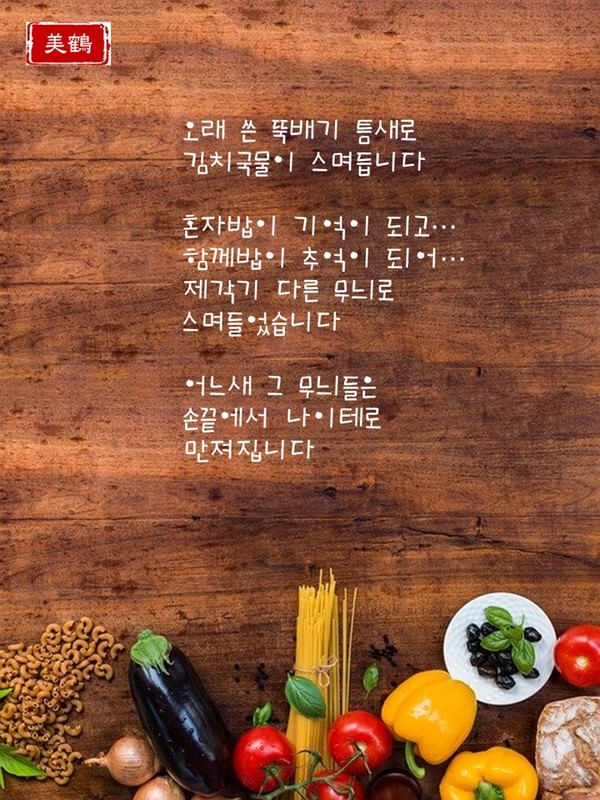 美鶴
오래 쓴 뚝배기 틈새로
김치국물이 스며듭니다
혼자밥이 기억이 되고...
함께밥이 추억이 되어...
제각기 다른 무늬로
스며들었습니다
어느새 그 무늬들은
손끝에서 나이테로
만져집니다